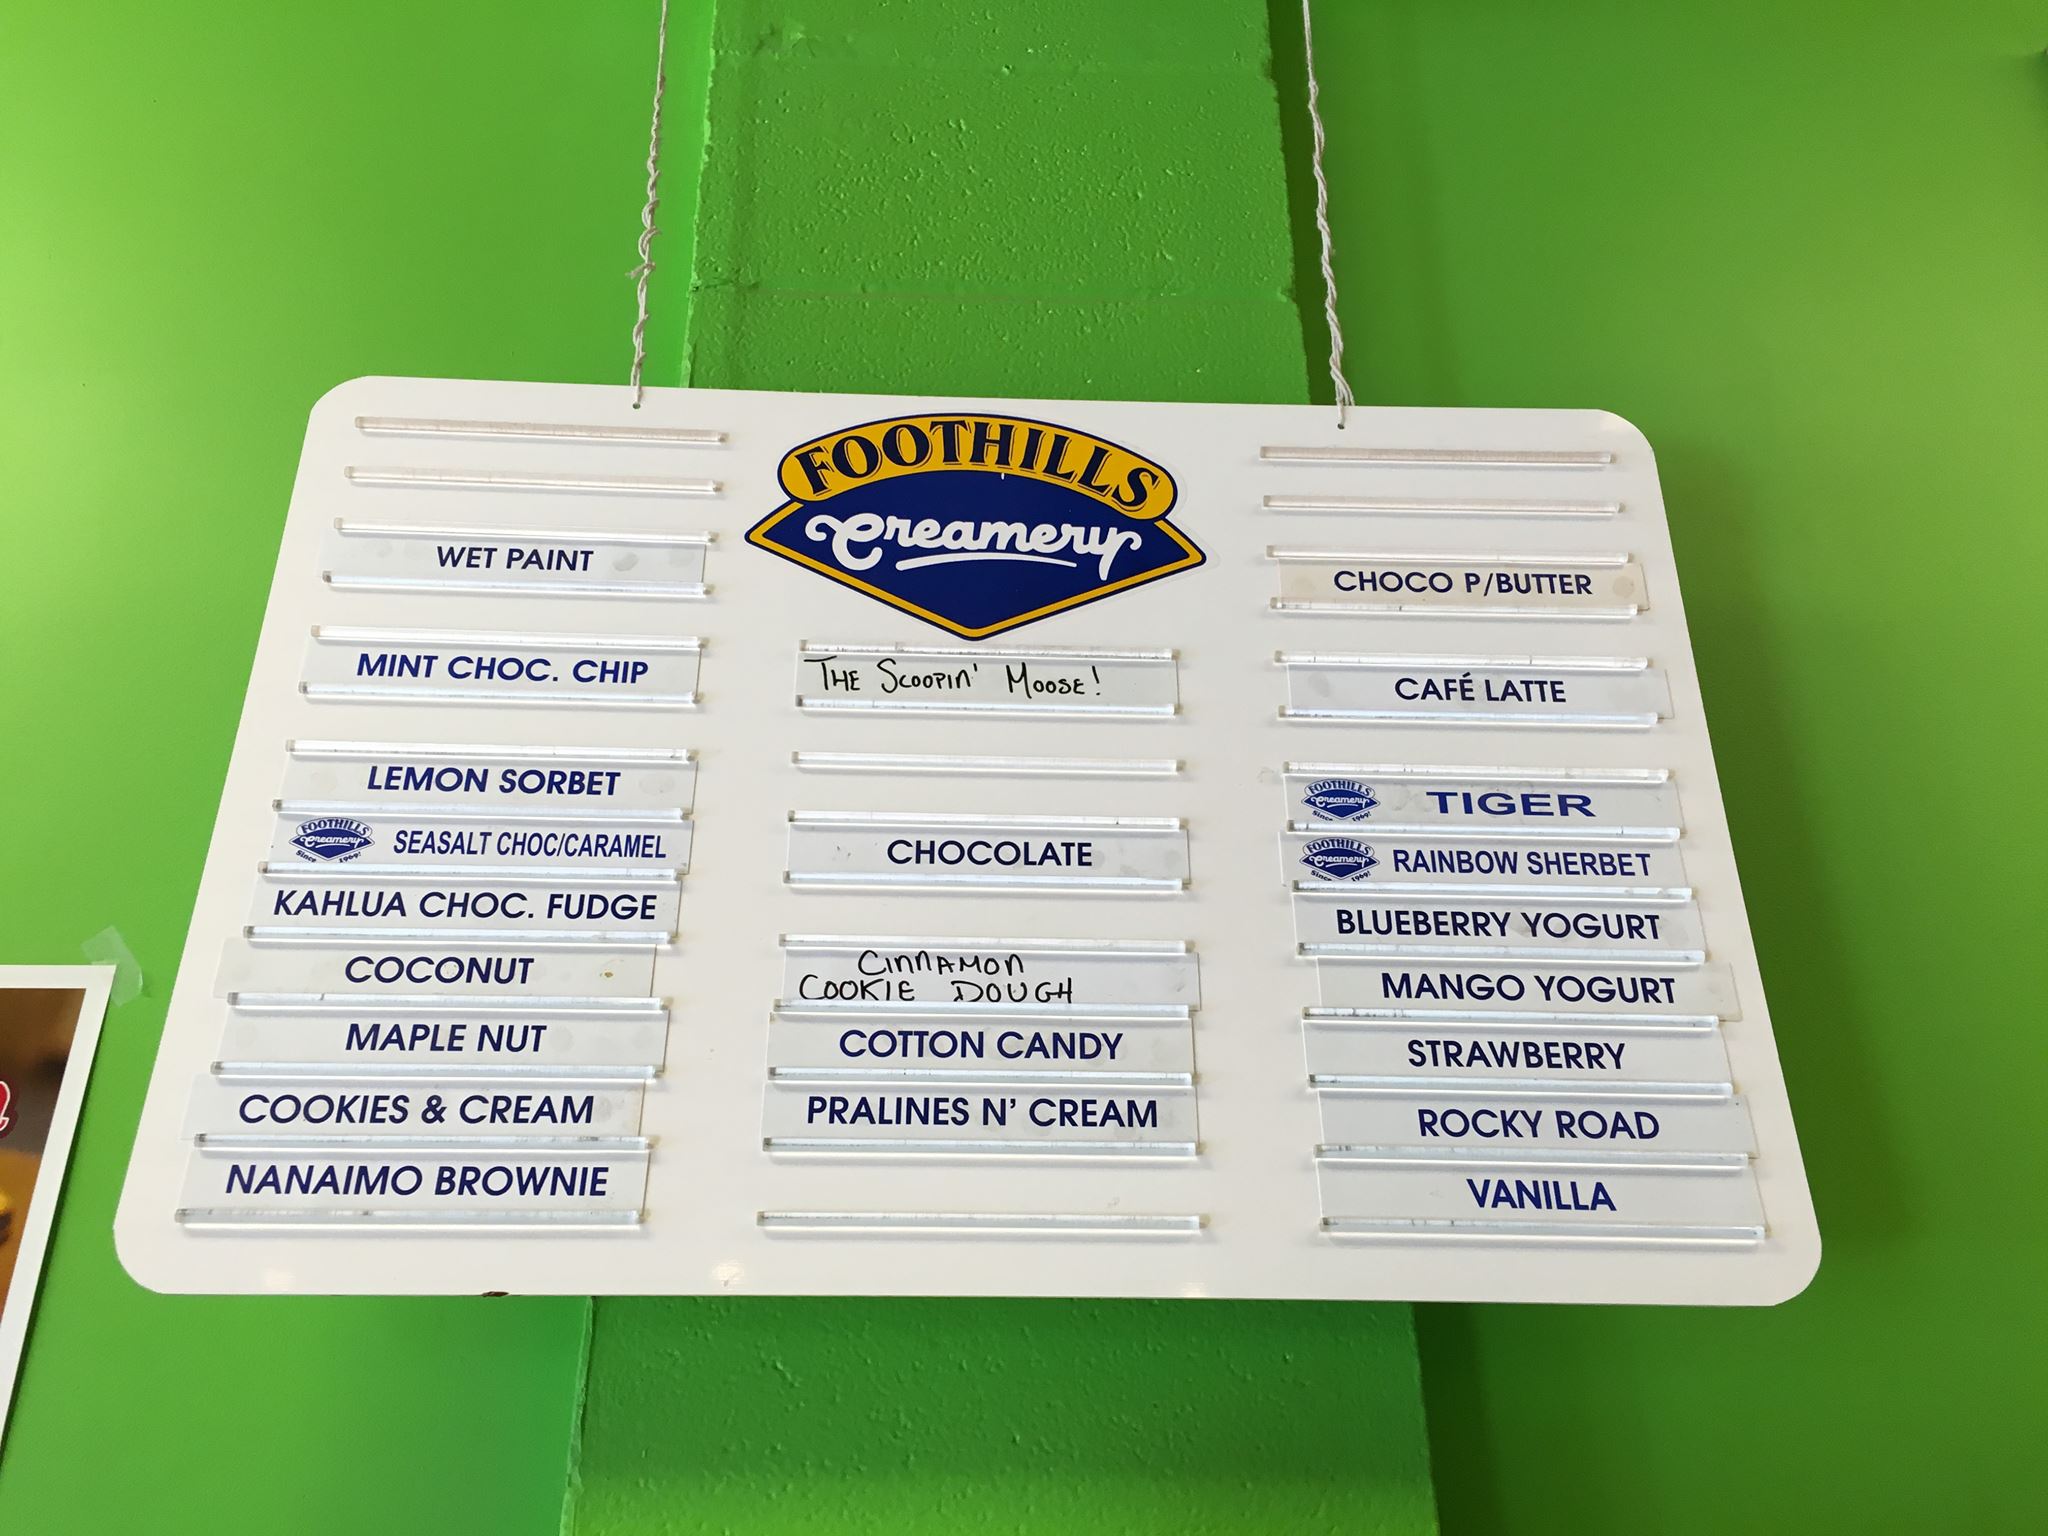 FOOTHILLS
Creamery
WET PAINT
MINT CHOC. CHIP
LEMON SORBET
FOOTHILLS
Creamery
Since 1969!
SEASALT CHOC/CARAMEL
KAHLUA CHOC. FUDGE
COCONUT
MAPLE NUT
COOKIES & CREAM
NANAIMO BROWNIE
THE SCOOPIN' MOOSE!
CHOCOLATE
CINNAMON
COOKIE DOUGH
COTTON CANDY
PRALINES N' CREAM
CHOCO P/BUTTER
CAFÉ LATTE
FOOTHILLS
Creamery
Since 1969!
TIGER
FOOTHILLS
Creamery
Since 1969!
RAINBOW SHERBET
BLUEBERRY YOGURT
MANGO YOGURT
STRAWBERRY
ROCKY ROAD
VANILLA